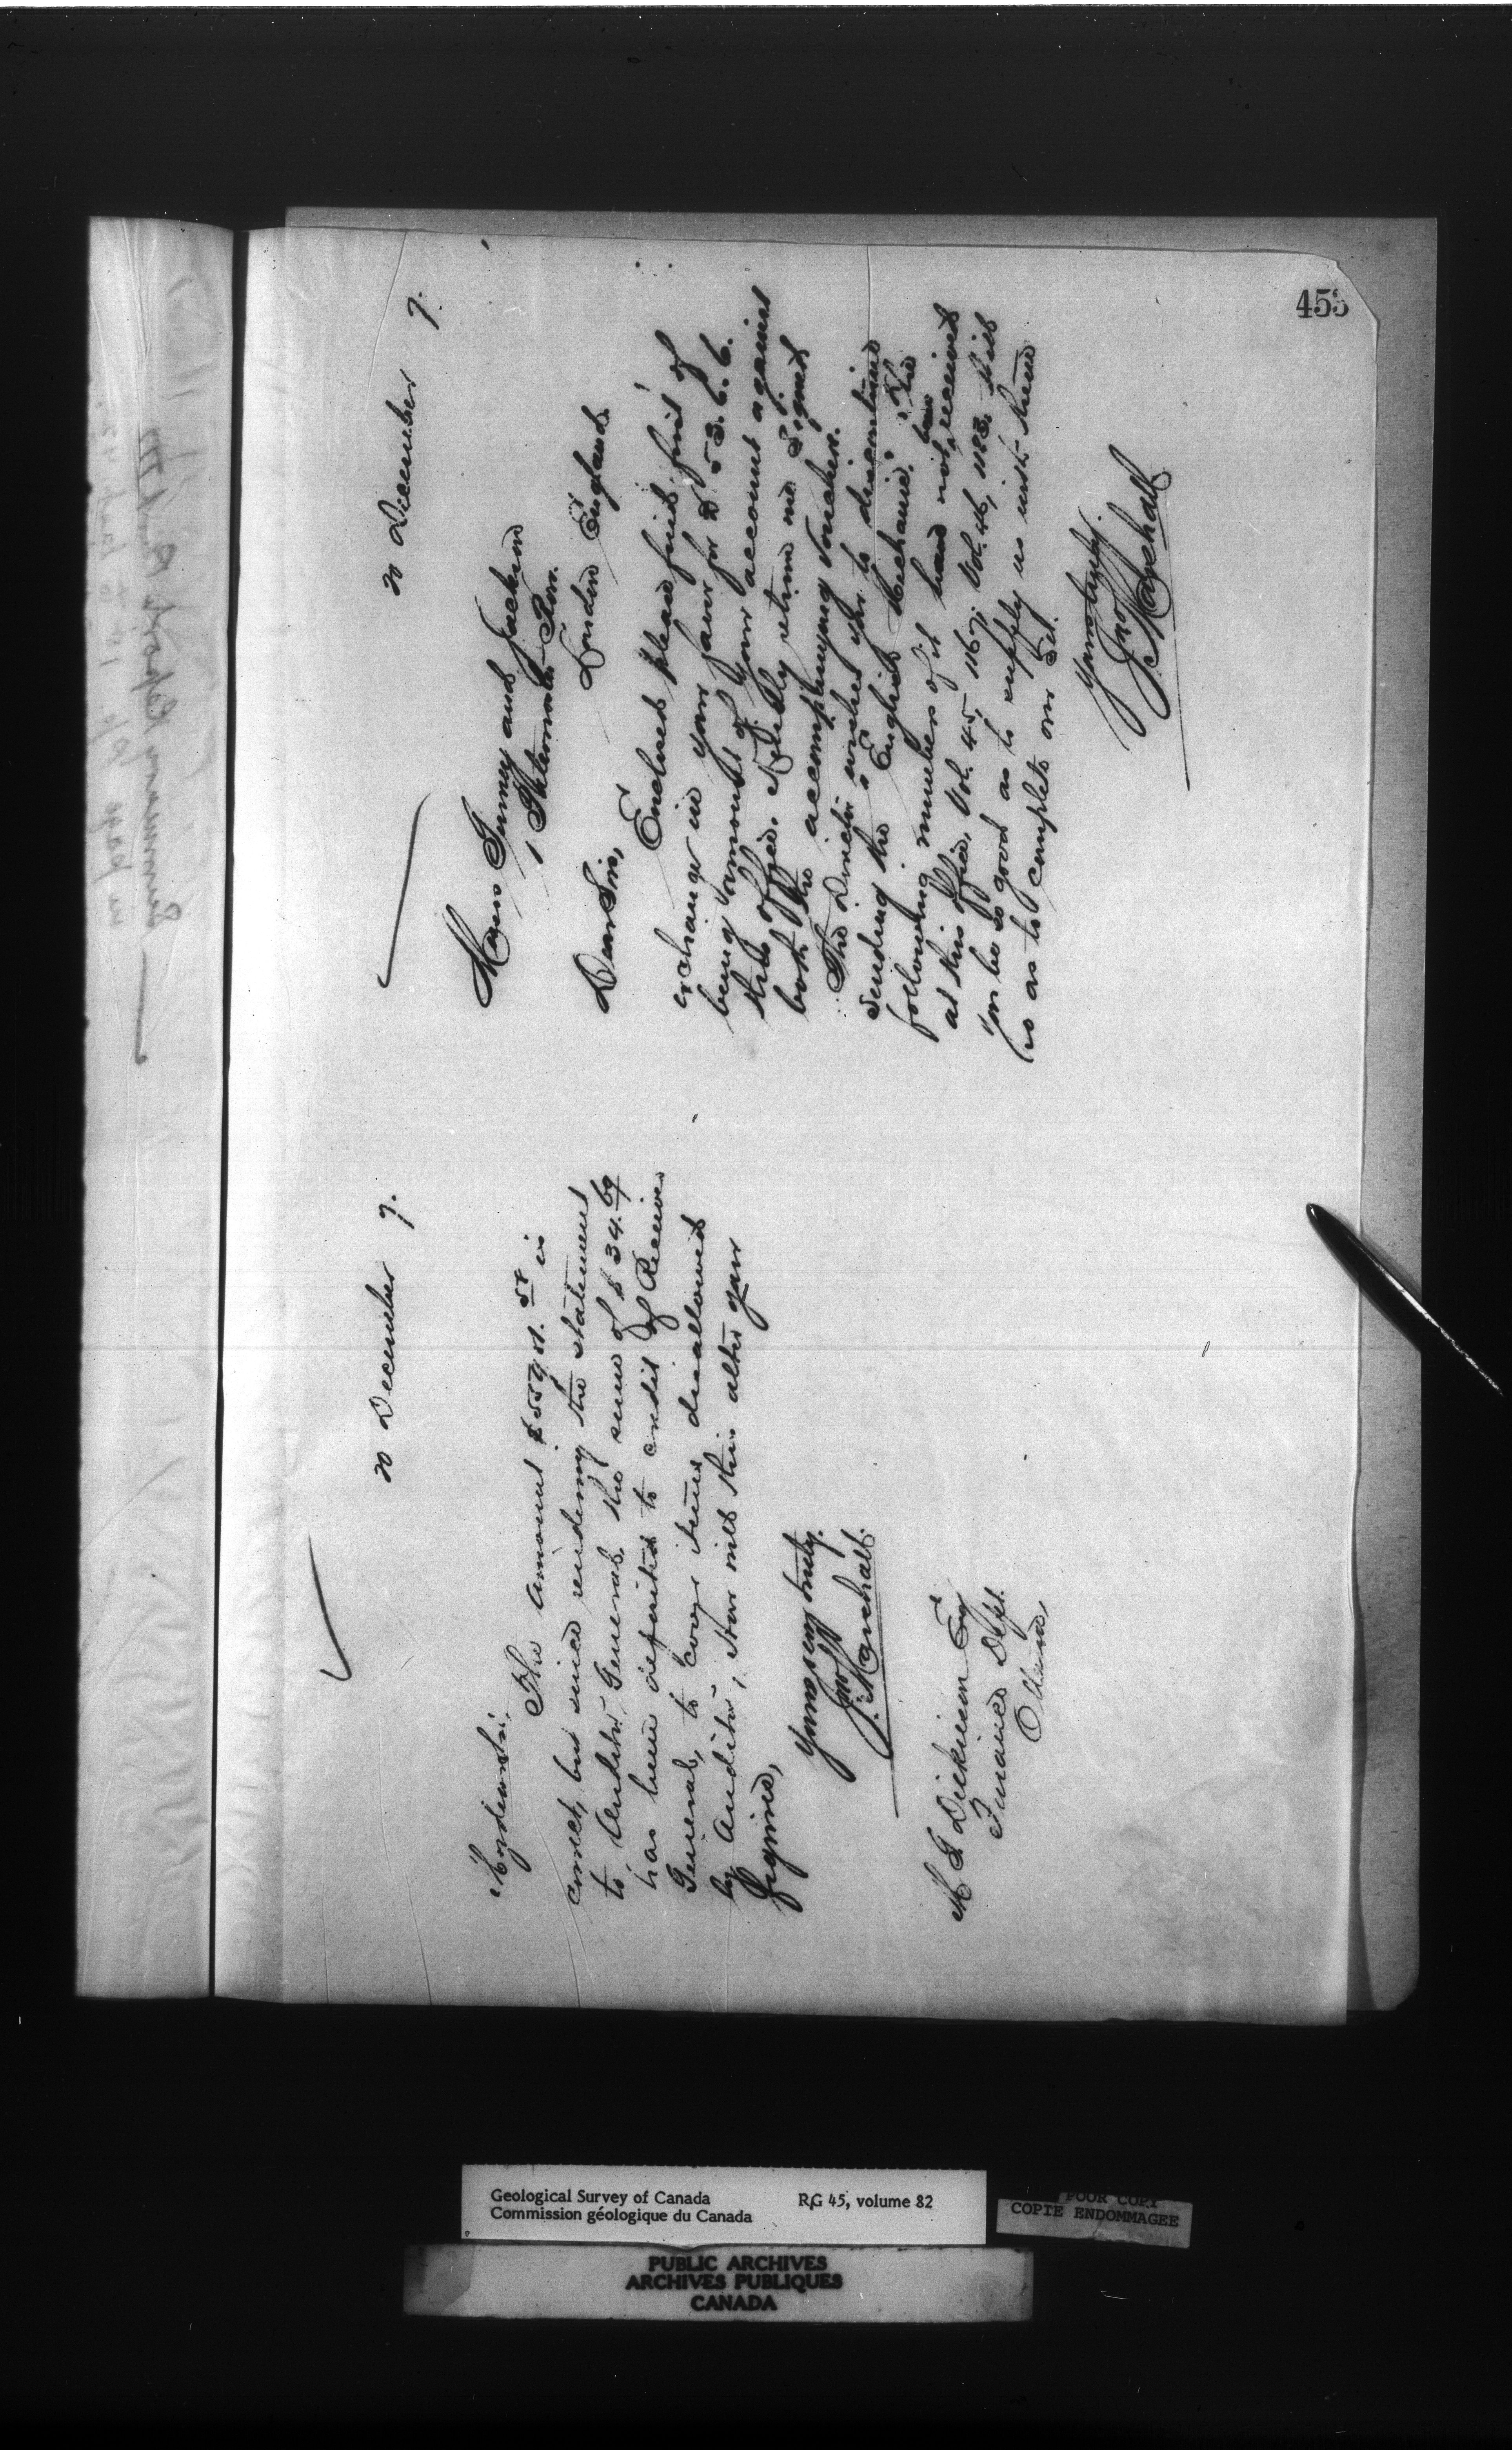 453
20 December 7.
My dear Sir,
The amount $5591.58 is
correct, but since rendering the statement
to Auditor General the sum of $34.69
has been deposited to credit of Receiver
General, to cover items disallowed
by Auditor, How will this alter your
figures,
Yours very truly.
Jno Marshall.
M G Dickieson Esq
Finance Dept.
Ottawa,
20 December 7.
Messrs Penney and Jackson
1 Paternoster Row.
London England.
Dear Sirs,
Enclosed please find first of
exchange in your favor for £53.6.6.
being amount of your account against
this office. Kindly return me signed
both the accompanying vouchers.
The Director wishes you to discontinue
sending the "English Mechanic." The
following numbers of it have not been received
at this office, Vol. 45, 1167, Vol. 46, 1183. Will
you be so good as to supply us with these
so as to complete our set.
Yours truly.
Jno Marshall
Summary Report
Geological Survey of Canada
Commission géologique du Canada
RG 45, volume 82
POOR COPY
COPIE ENDOMMAGEE
PUBLIC ARCHIVES
ARCHIVES PUBLIQUES
CANADA